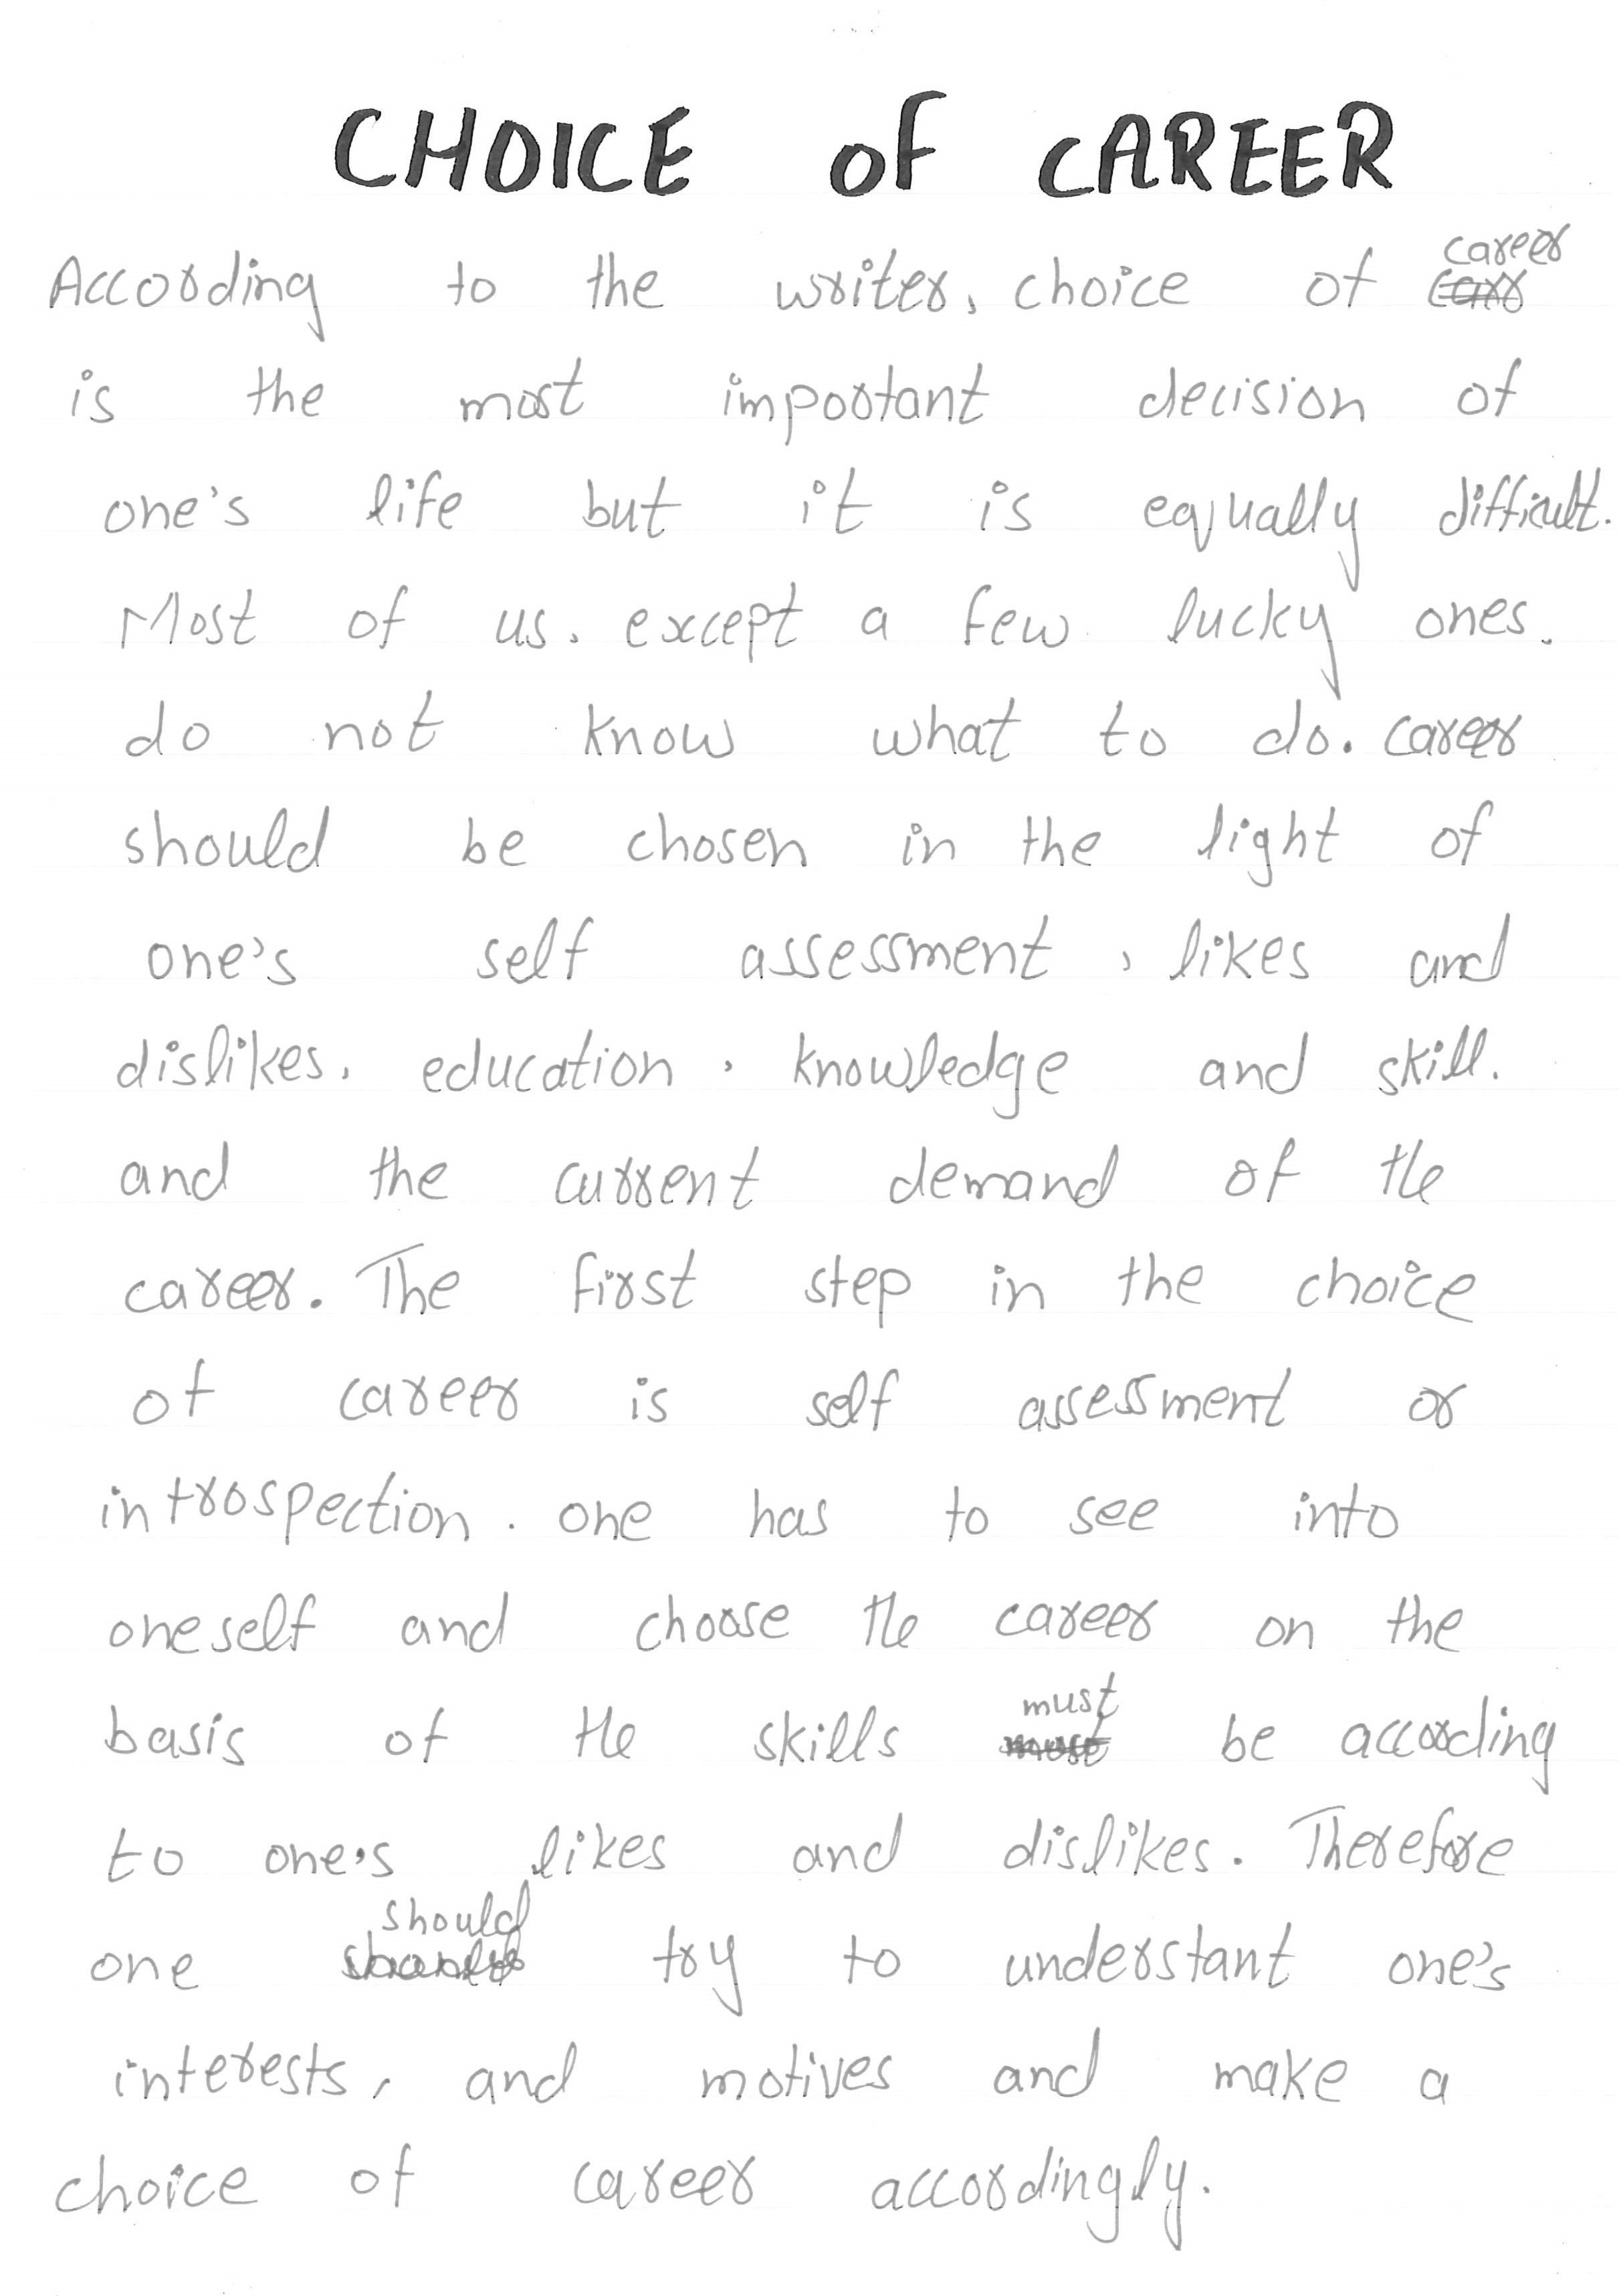 CHOICE OF CAREER
According to the writer, choice of career
is the most important decision of
one's life but it is equally difficult.
Most of us. except a few lucky ones.
do not know what to do. career
should be chosen in the light of
one's self assessment, likes and
dislikes, education, knowledge and skill.
and the current demand of the
career. The first step in the choice
of career is self assessment or
introspection. one has to see into
oneself and choose the career on the
basis of the skills must be according
to one's likes and dislikes. Therefore
one should try to understant one's
interests, and motives and make a
choice of career accordingly.